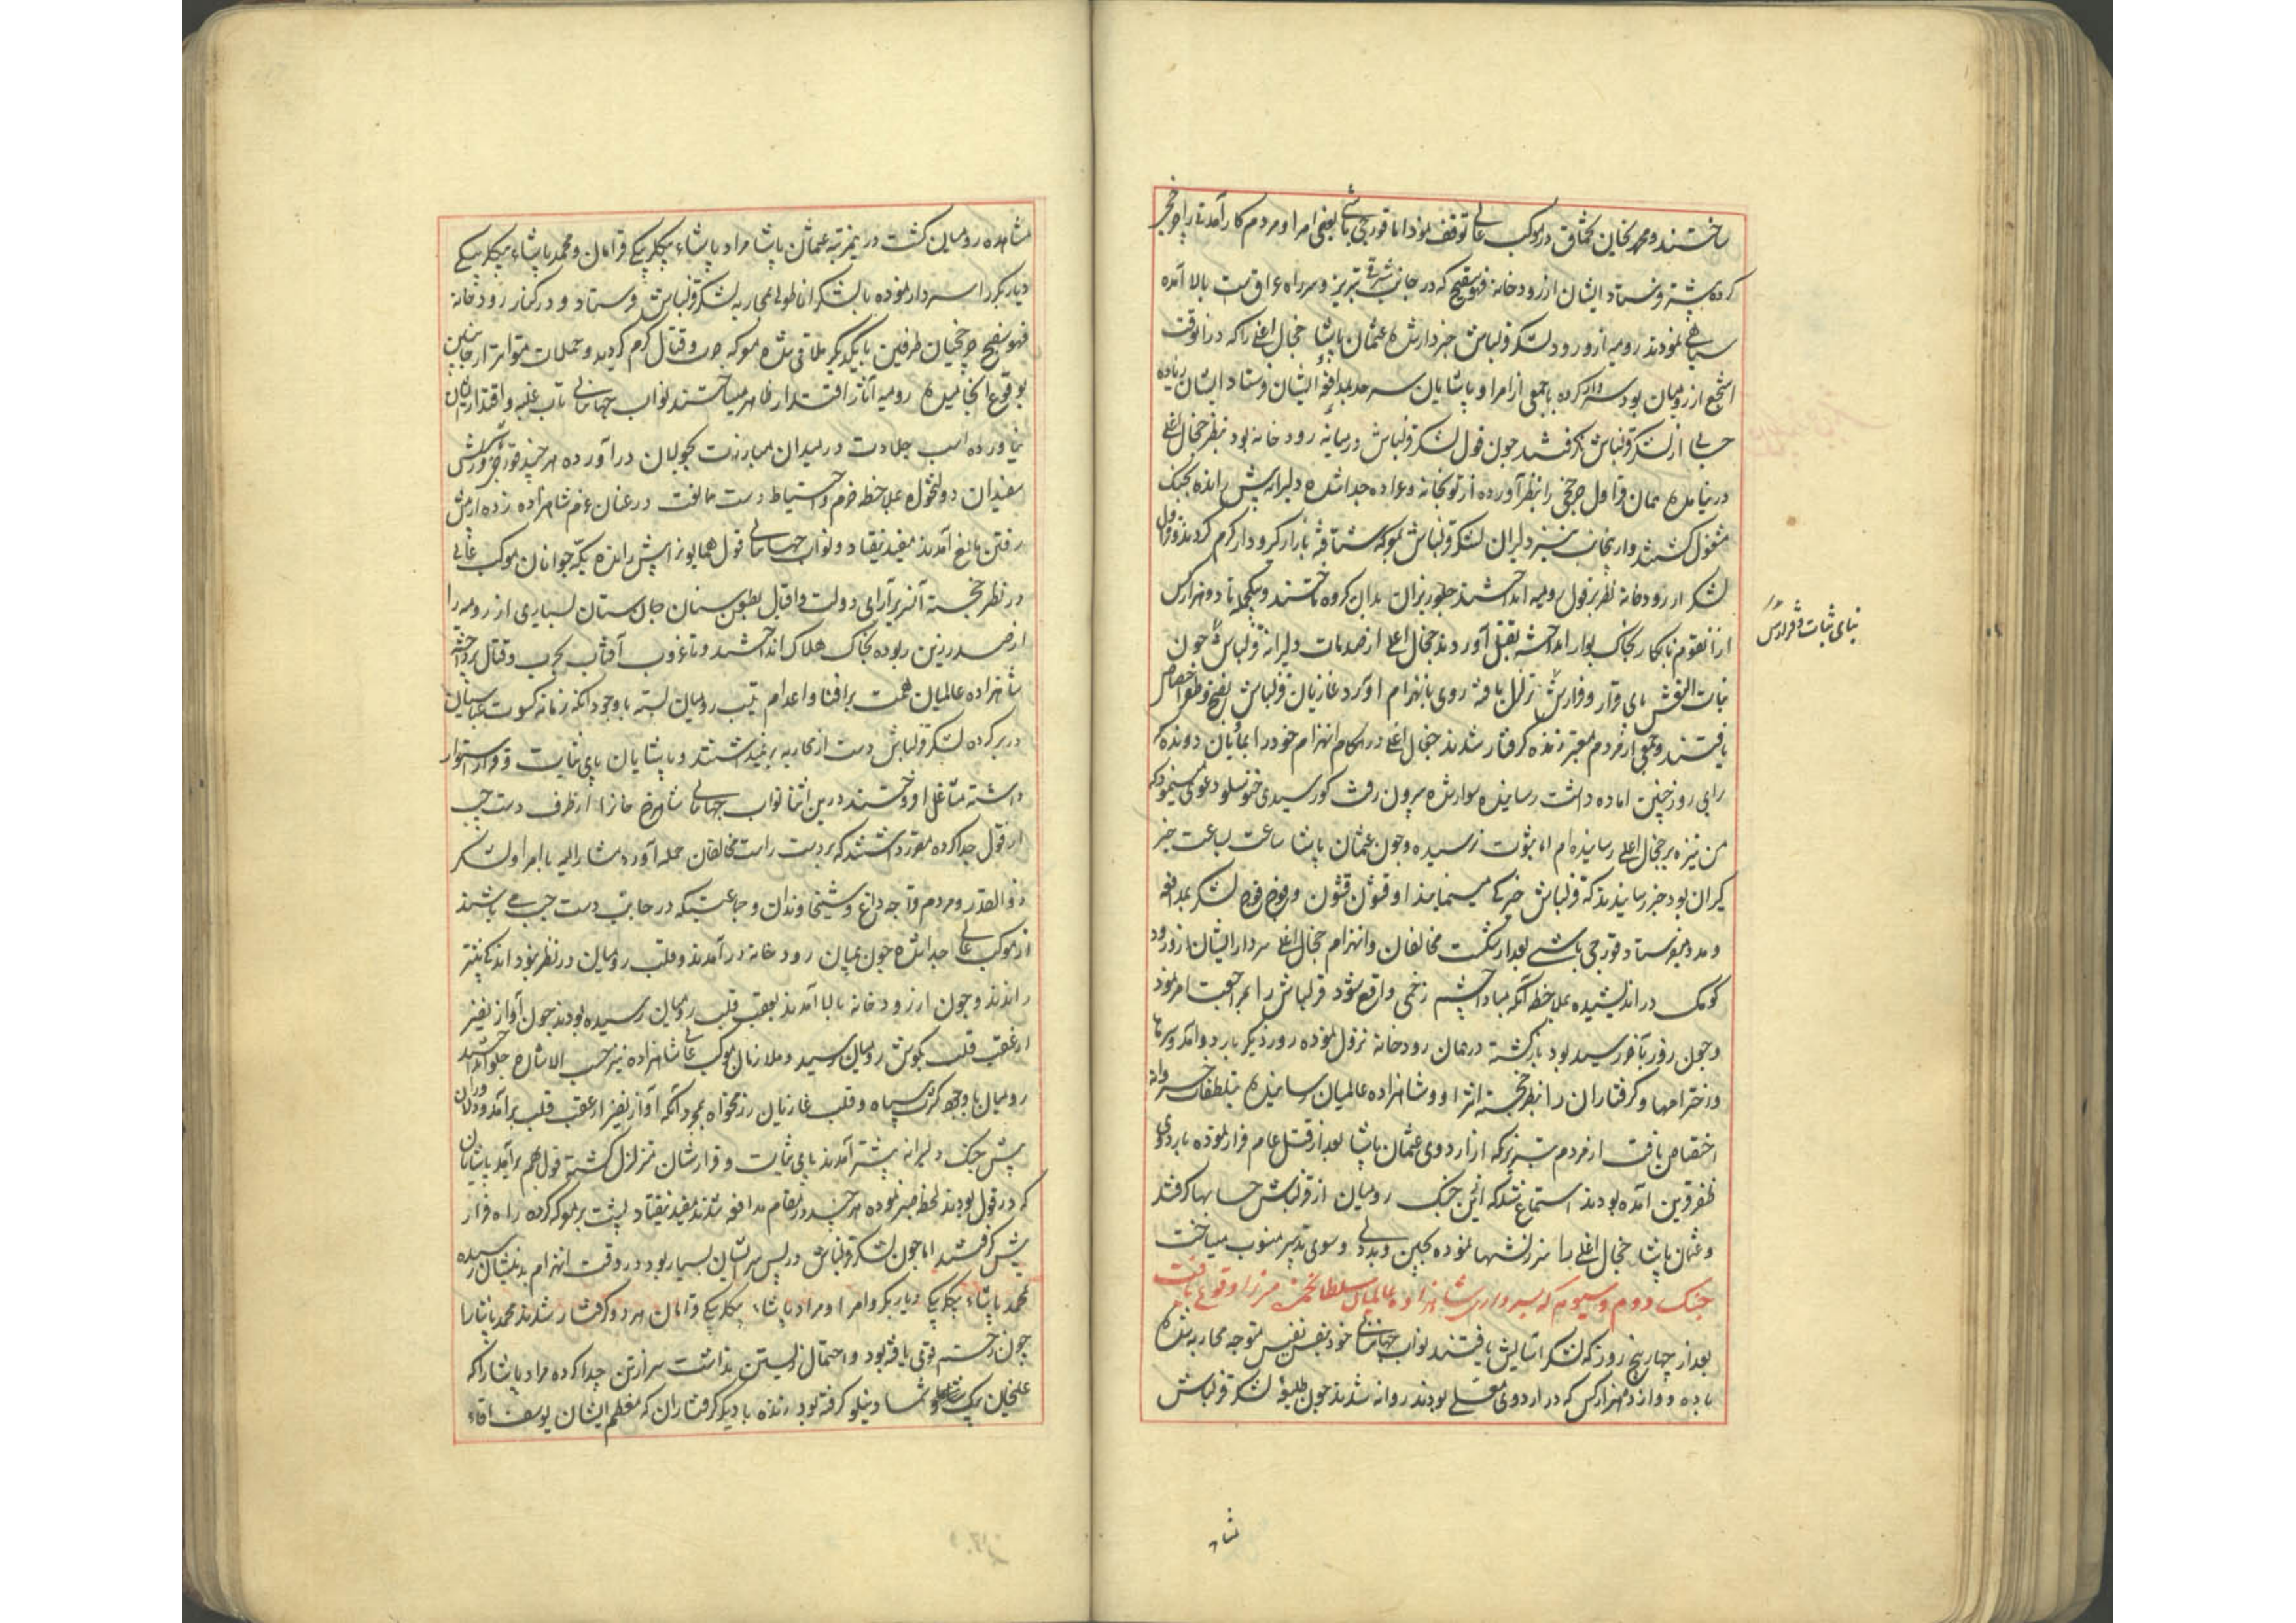 ساختند و محمد خان تخماق در موکب عالی توقف نمود اما قورچی باشی بعضی امرا و مردم کارآمدنی را چرخچی
کرده پیشتر فرستاد ایشان از رودخانه فهوسفنج که در جانب شرقی تبریز و سر راه عراق است بالا آمده
سیاهی نمودند رومیه از ورود لشکر قزلباش خبردار شده عثمان پاشا جغال اغلی را که در آنوقت
اشجع از رومیان بود سردار کرده با جمعی از امرا و پاشایان سرحد بمدافعه ایشان فرستاد ایشان زیاده
حسابی از لشکر قزلباش نگرفتند چون قول لشکر قزلباش در میانه رودخانه بود بنظر جغال اغلی
درنیامده همان قراول چرخچی را بنظر آورده از توپخانه و عراده جدا شده دلیرانه پیش رانده بجنگ
مشغول گشتند و ازینجانب نیز دلیران لشکر قزلباش بمعرکه شتافته بازار گیرودار گرم کردند و قول
لشکر از رودخانه نظر بر قول رومیه انداختند جلوریزان بدان گروه تاختند و بیکحمله تا دو هزار کس
از آنقوم نابکار بخاک بوار انداخته بقتل آوردند جغال اغلی از صدمات دلیرانه قزلباش چون
بنات النعش پای قرار و قرارش تزلزل یافته روی بانهزام آورد غازیان قزلباش بفتح و ظفر اختصاص
یافتند و جمعی از مردم معتبر زنده گرفتار شدند جغال اغلی در هنگام انهزام خود را بمادیان دونده که
برای روز چنین آماده داشت رسانیده سوار شده بیرون رفت کور سیدی خنوسلو دعوی مینمود که
من نیزه بر جغال اغلی رسانیده ام اما بثبوت نرسیده و چون عثمان پاشا ساعت بساعت خبر
گیران بود خبر رسانیدند که قزلباش خیرگی مینمایند او قشون قشون و فوج فوج لشکر بمدافعه
و مدد میفرستاد قورچی باشی بعد از شکست مخالفان و انهزام جغال اغلی سردار ایشان از ورود
کومک در اندیشیده بملاحظه آنکه مبادا چشم زخمی واقع شود قزلباش را بمراجعت امر نمود
و چون روز بآخر رسیده بود بازگشته در همان رودخانه نزول نموده روز دیگر باردو آمد و سرها
و اخترامها و گرفتاران را بنظر خجسته اثر او و شاهزاده عالمیان رسانیده بتلطفات خسروانه
اختصاص یافت از مردم تبریز که از اردوی عثمان پاشا بعد از قتل عام فرار نموده باردوی
ظفر قرین آمده بودند استماع شد که ازین جنگ رومیان از قزلباش حسابها گرفتند
و عثمان پاشا جغال اغلی را سرزنشها نموده بجبن و بددلی و سوی تدبیر منسوب میساخت
جنگ دوم و سیوم که بسرداری شاهزاده عالمیان سلطان حمزه میرزا وقوع یافت
بعد از چهار پنج روز که لشکر آسایش یافتند نواب جهانبانی خود بنفس نفیس متوجه محاربه شده
با ده دوازده هزار کس که در اردوی معلی بودند روانه شدند چون طلیعه لشکر قزلباش
پای ثبات و قرارش
مشاه
مشاهده رومیان گشت درینمرتبه عثمان پاشا مراد پاشاء بیکلربیکی قرامان و محمد پاشاء بیکلربیکی
دیاربکر را سردار نموده با لشکر اناطولی بمحاربه لشکر قزلباش فرستاد و در کنار رودخانه
فهوسفنج چرخچیان طرفین با یکدیگر ملاقی شده معرکه حرب و قتال گرم گردید و حملات متواتر از جانبین
بوقوع انجامیده رومیه آثار اقتدار ظاهر میساختند نواب جهانبانی تاب غلبه و اقتدار ایشان
نیاورده اسب جلادت در میدان مبارزت بجولان درآورده هر چند قورچیان و ریش
سفیدان دولتخواه بملاحظه حزم و احتیاط دست ممانعت در عنان عزم شاهزاده زده از پیش
رفتن مانع آمدند مفید نیفتاد و نواب جهانبانی قول همایون را پیش رانده یکه جوانان موکب عالی
در نظر خجسته آثر برآرای دولت و اقبال بطعن سنان جان ستان بسیاری از رومیه را
از صدر زین ربوده بخاک هلاک انداختند و تا غروب آفتاب بحرب و قتال پرداخته
شاهزاده عالمیان همت بر افنا و اعدام تیپ رومیان بسته با وجود آنکه زمانه کسوت عباسیان
در بر کرده لشکر قزلباش دست از محاربه برنمیداشتند و پاشایان پای ثبات و قرار استوار
داشته مشاعل افروختند درین اثنا نواب جهانبانی شاهرخ خانرا از طرف دست چپ
از قول جدا کرده مقرر داشتند که بر دست راست مخالفان حمله آورد مشارالیه با امرا و لشکر
ذوالقدر و مردم قراجه داغ و شیخاوندان و جماعتیکه در جانب دست چپ می باشند
از موکب عالی جدا شده چون بمیان رودخانه درآمدند و قلب رومیان در نظر نبود اندکی پیشتر
راندند و چون از رودخانه بالا آمدند بعقب قلب رومیان رسیده بودند چون آواز نفیر
از عقب قلب بگوش رومیان رسید و ملازمان موکب عالی شاهزاده نیز حسب الاشاره جلو انداختند
رومیان با وجود کثرت سپاه و قلب غازیان رزمخواه بمجرد آنکه آواز نفیر از عقب قلب برآمد و دلاوران
پیش جنگ دلیرانه پیشتر آمدند پای ثبات و قرارشان متزلزل گشته قول بهم برآمد پاشایان
که در قول بودند لحظه صبر نموده هر چند در مقام مدافعه شدند مفید نیفتاد پشت بر معرکه کرده راه فرار
پیش گرفتند اما چون لشکر قزلباش در پس سر ایشان بسیار بود در وقت انهزام بدیشان رسیده
محمد پاشاء بیکلربیکی دیاربکر و امرا و مراد پاشاء بیکلربیکی قرامان هر دو گرفتار شدند محمد پاشا را
چون زخم قوی یافته بود و احتمال زیستن نداشت سر از تن جدا کرده مراد پاشا را که
علیخان بیک شادیلو گرفته بود زنده با دیگر گرفتاران که معظم ایشان یوسف اقاء